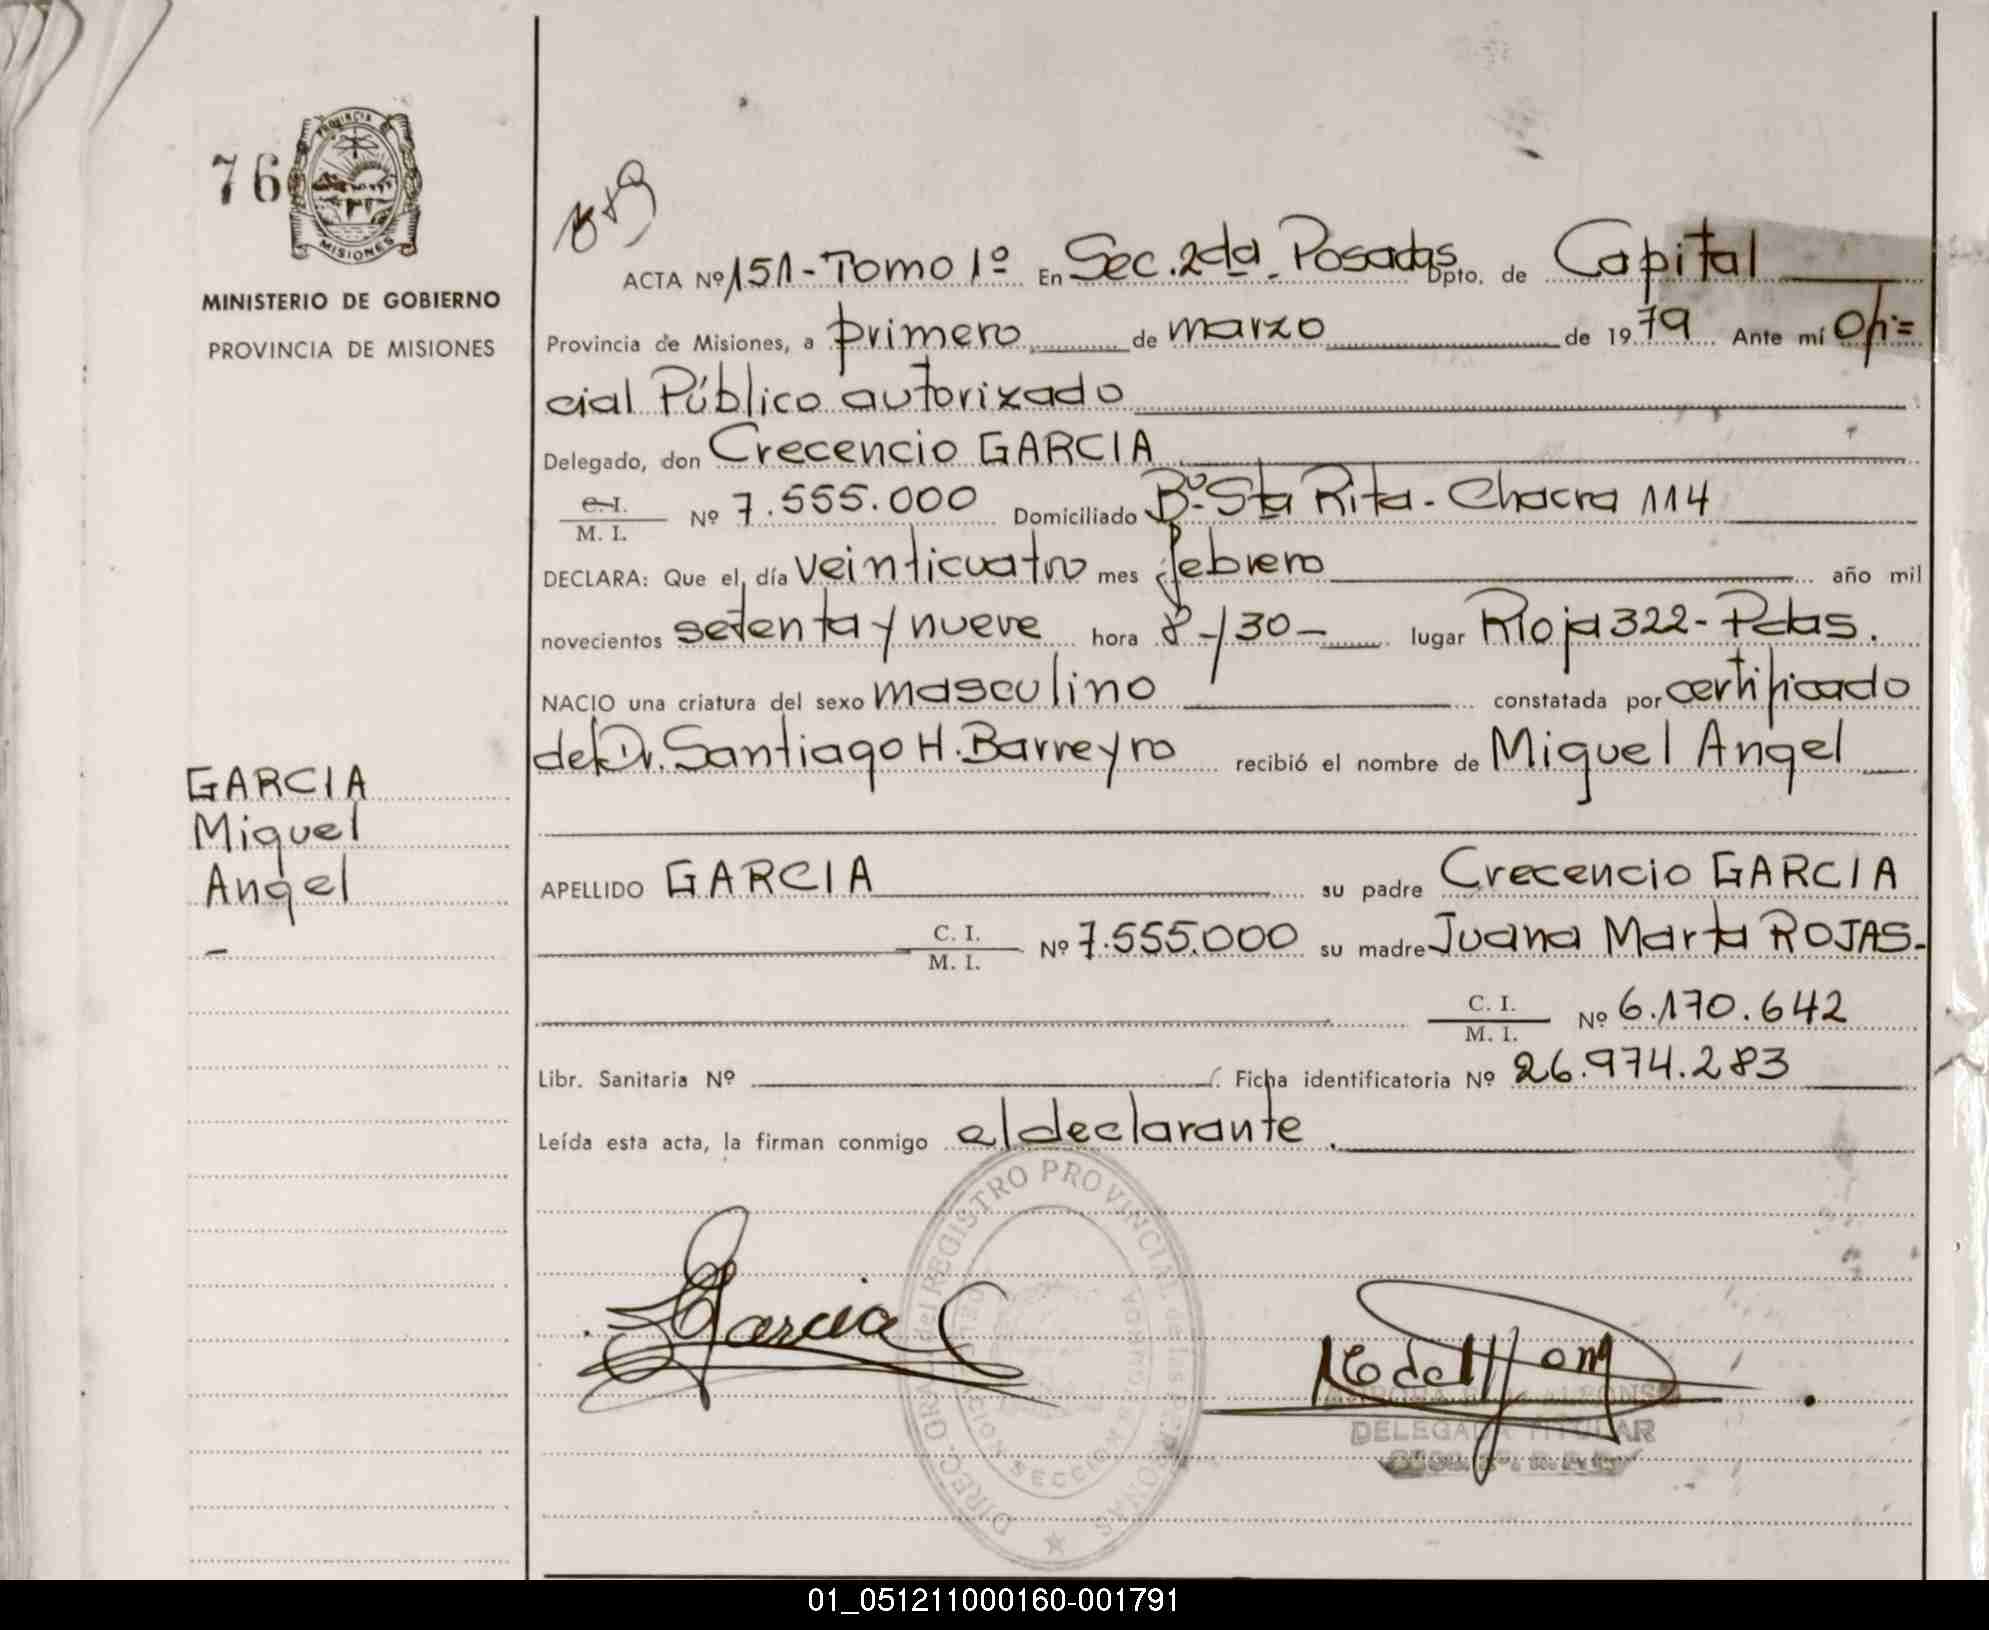 76
PROVINCIA DE
MISIONES
MINISTERIO DE GOBIERNO
PROVINCIA DE MISIONES
ACTA Nº 151 - Tomo 1º En Sec. 2da. Posadas Dpto. de Capital
Provincia de Misiones, a primero de marzo de 1979 Ante mí Ofi=
cial Público autorizado
Delegado, don Crecencio GARCIA
C. I.
M. I. Nº 7.555.000 Domiciliado Bº Sta Rita - Chacra 114
DECLARA: Que el día veinticuatro mes febrero año mil
novecientos setenta y nueve hora 8-/30- lugar Rioja 322 - Pdas.
NACIO una criatura del sexo masculino constatada por certificado
del Dr. Santiago H. Barreyro recibió el nombre de Miguel Angel
GARCIA
Miguel
Angel
-
APELLIDO GARCIA su padre Crecencio GARCIA
C. I.
M. I. Nº 7.555.000 su madre Juana Marta ROJAS.-
C. I.
M. I. Nº 6.170.642
Libr. Sanitaria Nº Ficha identificatoria Nº 26.974.283
Leída esta acta, la firman conmigo el declarante.
DIREC. GRAL. del REGISTRO PROVINCIAL de las PERSONAS
SECCION
Garcia
DELEGADA TITULAR
01_051211000160-001791